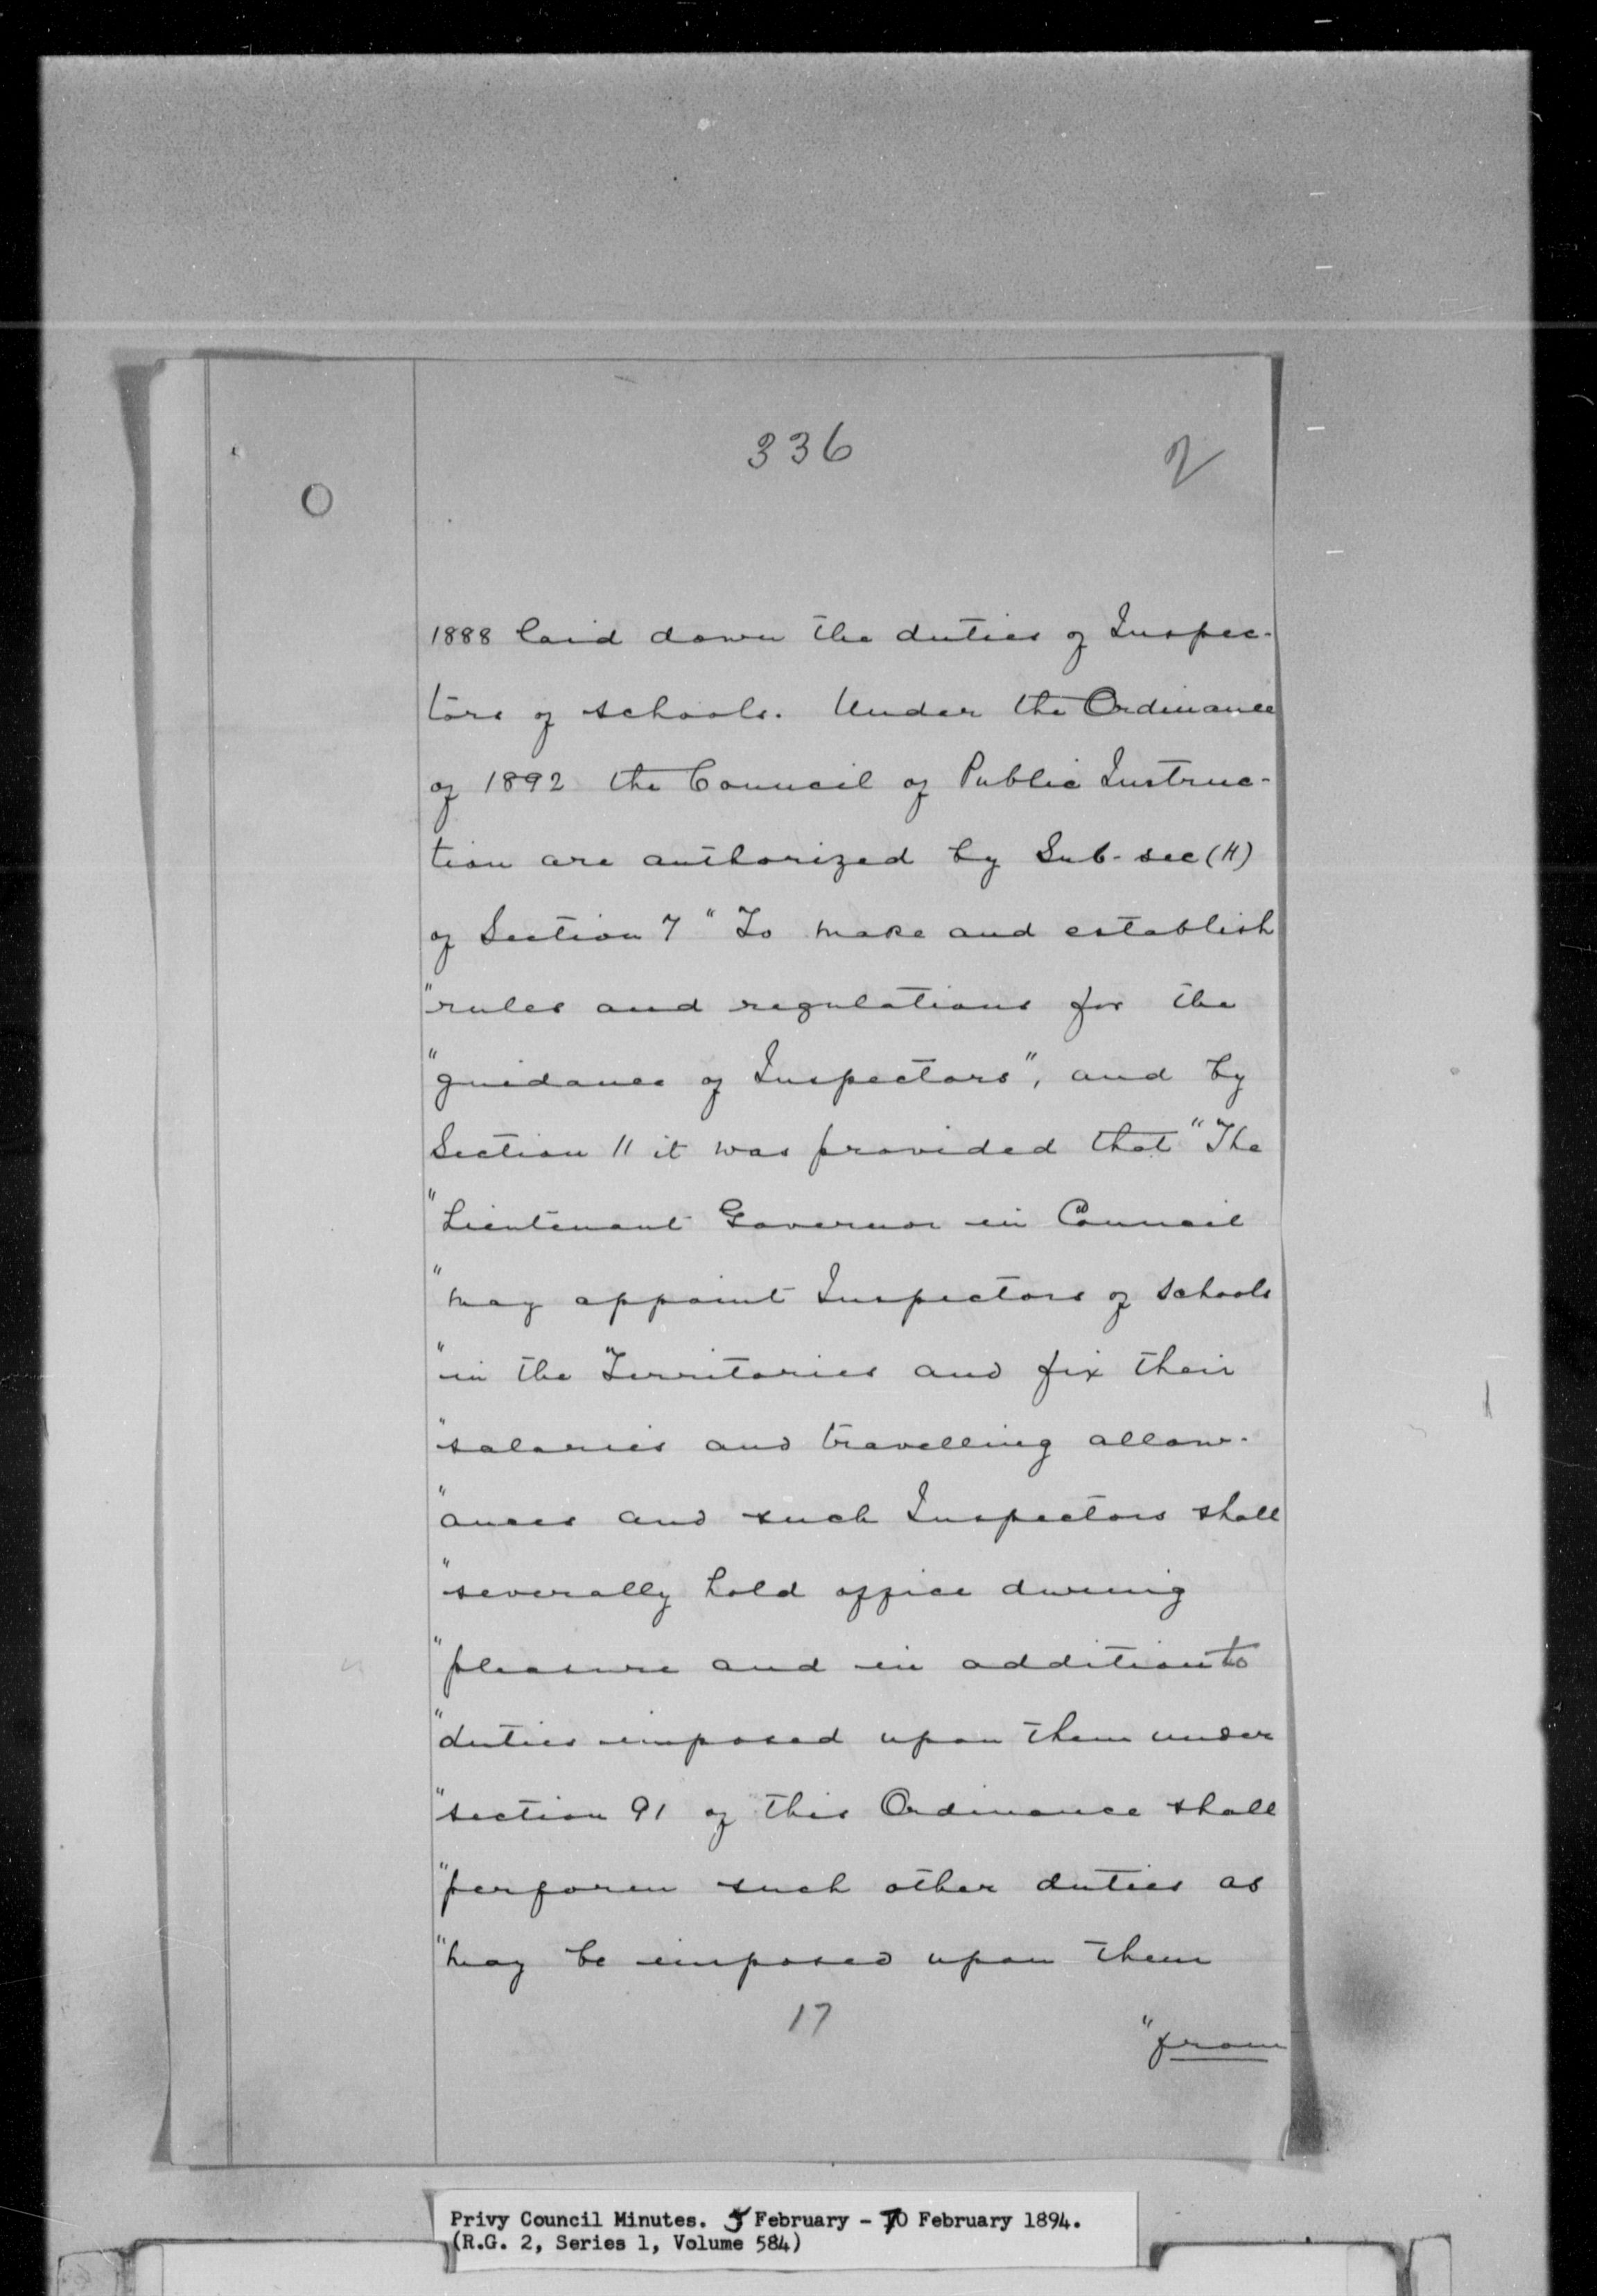 336
2
1888 laid down the duties of Inspec-
tors of schools. Under the Ordinance
of 1892 the Council of Public Instruc-
tion are authorized by Sub-sec (H)
of Section 7 "To make and establish
"rules and regulations for the
"guidance of Inspectors", and by
Section 11 it was provided that "The
"Lieutenant Governor in Council
"may appoint Inspectors of schools
"in the Territories and fix their
"salaries and travelling allow-
"ances and such Inspectors shall
"severally hold office during
"pleasure and in addition to
"duties imposed upon them under
"section 91 of this Ordinance shall
"perform such other duties as
"may be imposed upon them
17
"from
Privy Council Minutes. 5 February - 10 February 1894.
(R.G. 2, Series 1, Volume 584)